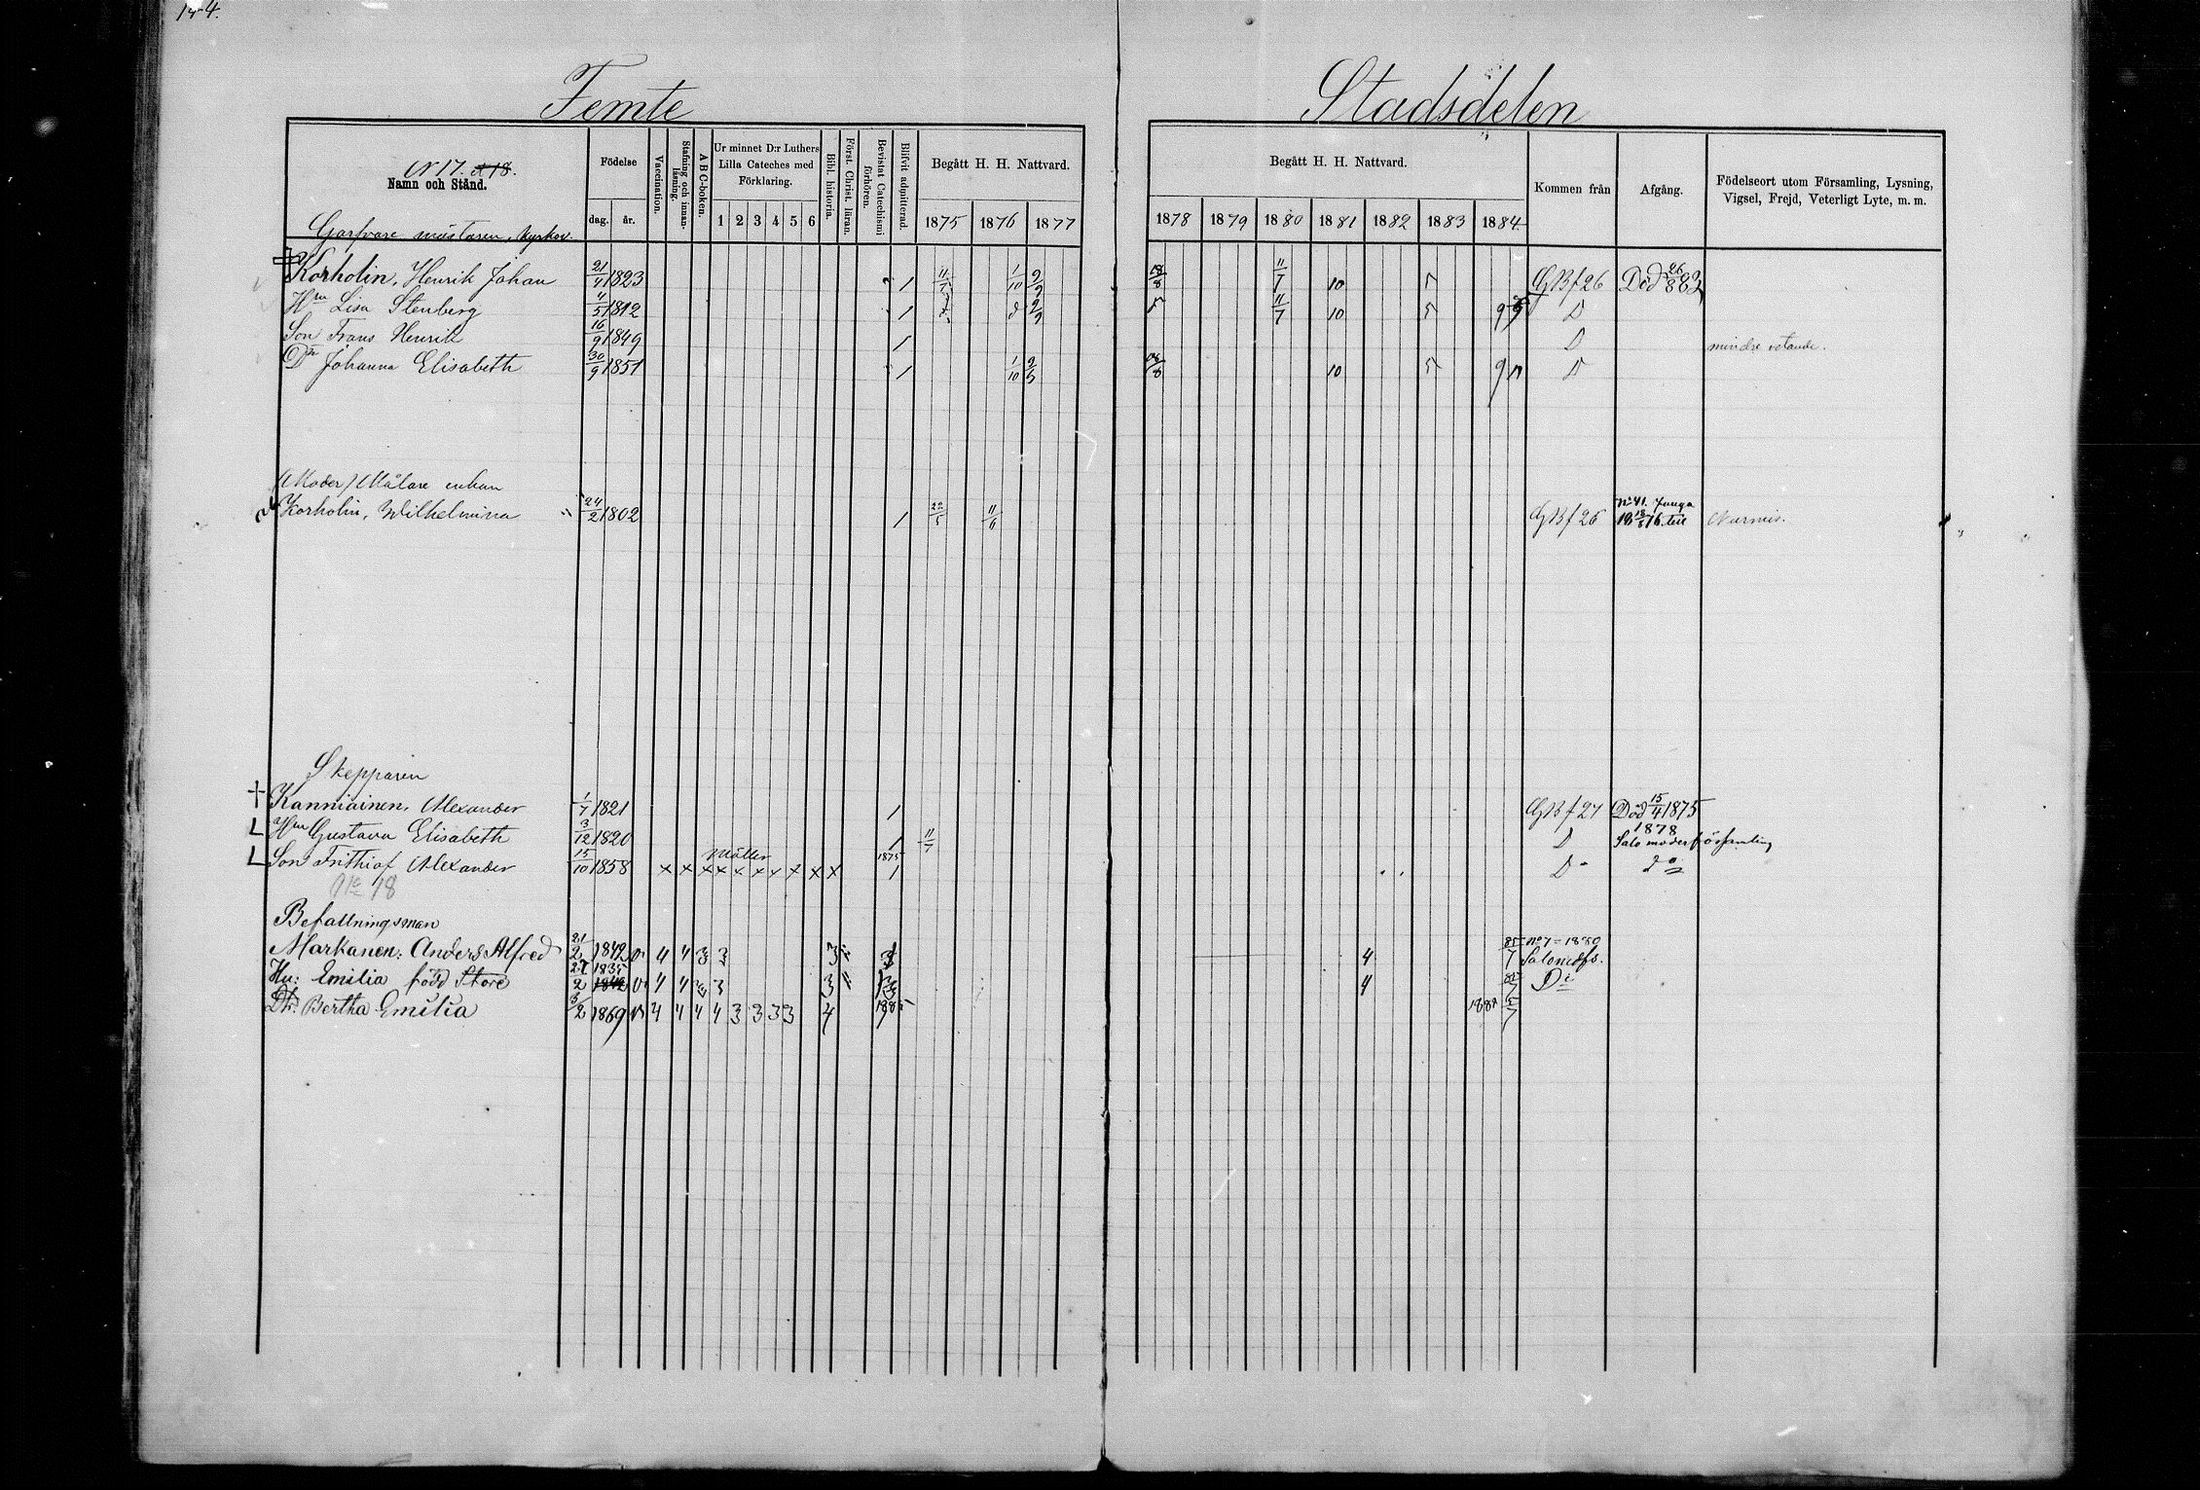 Femte Stadsdelen
N 17. & 18.
Namn och Stånd.
Födelse
dag. år.
Vaccination.
Stafning och innanläsning.
A B C-boken.
Ur minnet D:r Luthers Lilla Cateches med Förklaring.
1 2 3 4 5 6
Bibl. historia.
Först. Christ. läran.
Bevistat Catechismi förhören.
Blifvit admitterad.
Begått H. H. Nattvard.
1875 1876 1877
Begått H. H. Nattvard.
1878 1879 1880 1881 1882 1883 1884
Kommen från
Afgång.
Födelseort utom Församling, Lysning, Vigsel, Frejd, Veterligt Lyte, m. m.
Garfvare mästaren, Kyrkov.
Korholin, Henrik Johan 21/4 1823 1 11/7 1/10 9/9 18/8 11/7 10 5 GB f 26 Död 26/8 83
Hru Lisa Stenberg 4/5 1812 1 11/7 10 5 9 D
Son Frans Henrik 16/9 1849 1 D mindre vetande.
Dr Johanna Elisabeth 30/9 1851 1 1/10 10 5 9 D
(Moder) Målare enkan
Korholin, Wilhelmina 24/2 1802 1 22/5 11/6 GB f 26 No 41.
Skepparen
Kanniainen, Alexander 1/7 1821 1 GB f 27 Död 15/4 1875
Hru Gustava Elisabeth 3/12 1820 1 11/7 D 1878 Salo moderförsamling
Son Frithiof Alexander 15/10 1858 x x x x x x x x x x 1875 1 Do do
No 18
Befallningsman
Markanen, Anders Alfred 21/2 1842 v 4 4 3 3 3 4 85/7 No 7 = 1880 Salo mdfs.
Hu: Emilia född Store 27/2 1835 1842 v 4 4 3 3 3 4 85/7 Do
Dtr. Bertha Emilia 3/2 1869 v 4 4 4 4 3 3 3 3 4 1885 1884